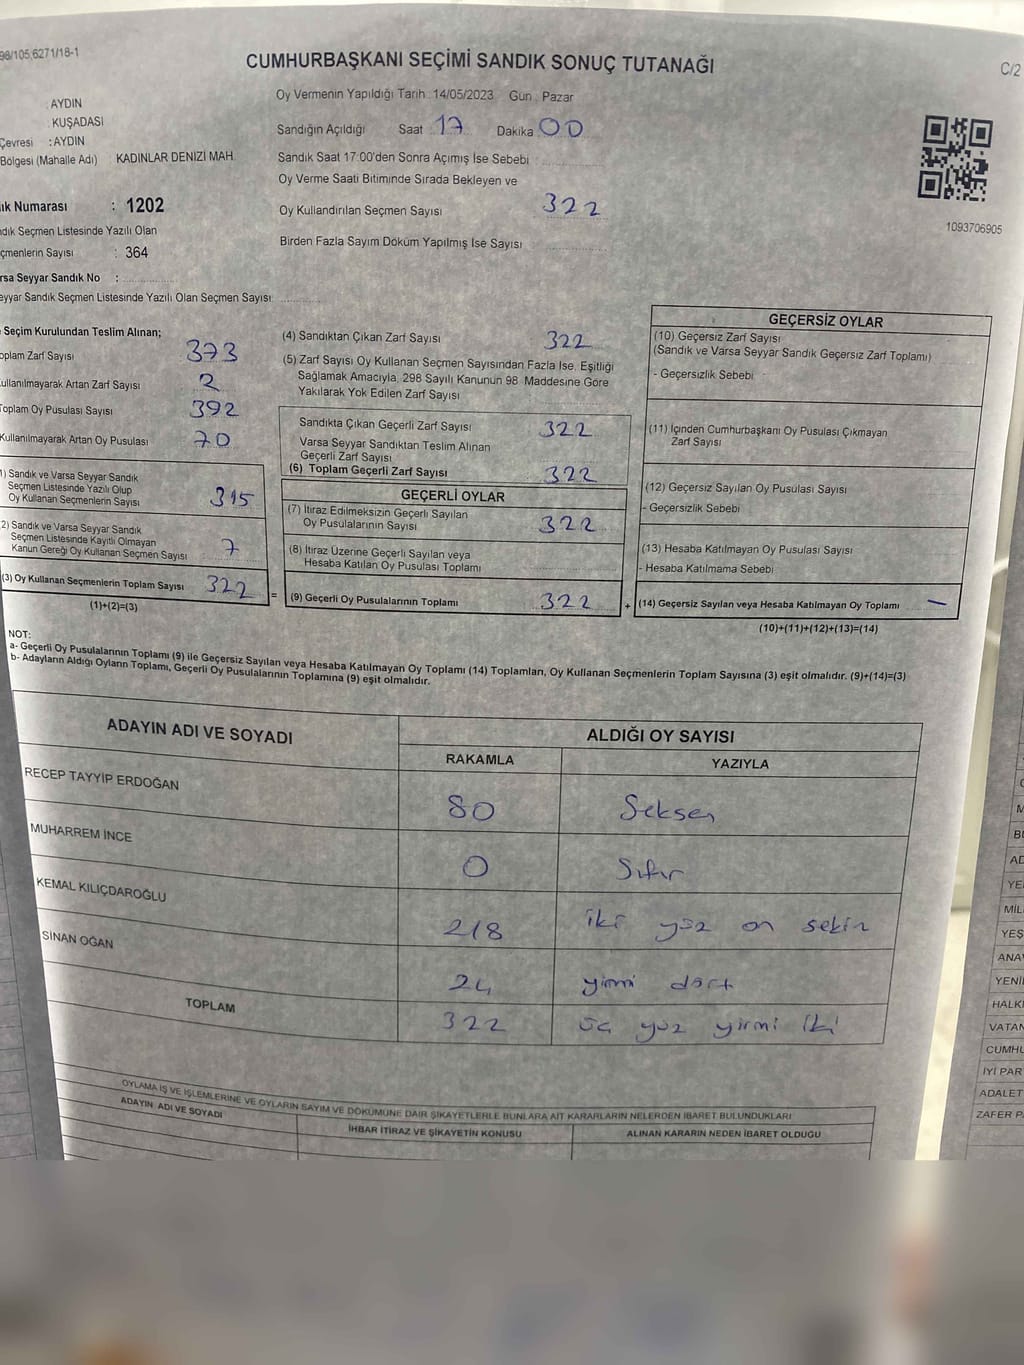 98/105,6271/18-1
CUMHURBAŞKANI SEÇİMİ SANDIK SONUÇ TUTANAĞI
C/2
: AYDIN
KUŞADASI
Çevresi : AYDIN
Bölgesi (Mahalle Adı) KADINLAR DENİZİ MAH.
Numarası : 1202
Seçmen Listesinde Yazılı Olan
Sayısı : 364
Seyyar Sandık No :
Seyyar Sandık Seçmen Listesinde Yazılı Olan Seçmen Sayısı
Oy Vermenin Yapıldığı Tarih : 14/05/2023 Gün : Pazar
Sandığın Açıldığı Saat 17 Dakika 00
Sandık Saat 17:00'den Sonra Açımış İse Sebebi :
Oy Verme Saati Bitiminde Sırada Bekleyen ve
Oy Kullandırılan Seçmen Sayısı 322
Birden Fazla Sayım Döküm Yapılmış İse Sayısı
1093706905
Seçim Kurulundan Teslim Alınan;
Toplam Zarf Sayısı 373
Kullanılmayarak Artan Zarf Sayısı 2
Toplam Oy Pusulası Sayısı 392
Kullanılmayarak Artan Oy Pusulası 70
(1) Sandık ve Varsa Seyyar Sandık
Seçmen Listesinde Yazılı Olup
Oy Kullanan Seçmenlerin Sayısı 315
(2) Sandık ve Varsa Seyyar Sandık
Seçmen Listesinde Kayıtlı Olmayan
Kanun Gereği Oy Kullanan Seçmen Sayısı 7
(3) Oy Kullanan Seçmenlerin Toplam Sayısı 322 =
(1)+(2)=(3)
(4) Sandıktan Çıkan Zarf Sayısı 322
(5) Zarf Sayısı Oy Kullanan Seçmen Sayısından Fazla İse, Eşitliği
Sağlamak Amacıyla, 298 Sayılı Kanunun 98. Maddesine Göre
Yakılarak Yok Edilen Zarf Sayısı
Sandıkta Çıkan Geçerli Zarf Sayısı 322
Varsa Seyyar Sandıktan Teslim Alınan
Geçerli Zarf Sayısı
(6) Toplam Geçerli Zarf Sayısı 322
GEÇERLİ OYLAR
(7) İtiraz Edilmeksizin Geçerli Sayılan
Oy Pusulalarının Sayısı 322
(8) İtiraz Üzerine Geçerli Sayılan veya
Hesaba Katılan Oy Pusulası Toplamı
(9) Geçerli Oy Pusulalarının Toplamı 322 +
GEÇERSİZ OYLAR
(10) Geçersiz Zarf Sayısı
(Sandık ve Varsa Seyyar Sandık Geçersiz Zarf Toplamı)
- Geçersizlik Sebebi
(11) İçinden Cumhurbaşkanı Oy Pusulası Çıkmayan
Zarf Sayısı
(12) Geçersiz Sayılan Oy Pusulası Sayısı
- Geçersizlik Sebebi
(13) Hesaba Katılmayan Oy Pusulası Sayısı
- Hesaba Katılmama Sebebi
(14) Geçersiz Sayılan veya Hesaba Katılmayan Oy Toplamı —
(10)+(11)+(12)+(13)=(14)
NOT:
a- Geçerli Oy Pusulalarının Toplamı (9) ile Geçersiz Sayılan veya Hesaba Katılmayan Oy Toplamı (14) Toplamları, Oy Kullanan Seçmenlerin Toplam Sayısına (3) eşit olmalıdır. (9)+(14)=(3)
b- Adayların Aldığı Oyların Toplamı, Geçerli Oy Pusulalarının Toplamına (9) eşit olmalıdır.
ADAYIN ADI VE SOYADI
ALDIĞI OY SAYISI
RAKAMLA YAZIYLA
RECEP TAYYİP ERDOĞAN 80 Seksen
MUHARREM İNCE 0 Sıfır
KEMAL KILIÇDAROĞLU 218 iki yüz on sekiz
SİNAN OĞAN 24 yirmi dört
TOPLAM 322 üç yüz yirmi iki
OYLAMA İŞ VE İŞLEMLERİNE VE OYLARIN SAYIM VE DÖKÜMÜNE DAİR ŞİKAYETLERLE BUNLARA AİT KARARLARIN NELERDEN İBARET BULUNDUKLARI
ADAYIN ADI VE SOYADI
İHBAR İTİRAZ VE ŞİKAYETİN KONUSU
ALINAN KARARIN NEDEN İBARET OLDUĞU
YENİ
HALK
VATAN
İYİ PAR
ADALET
ZAFER P